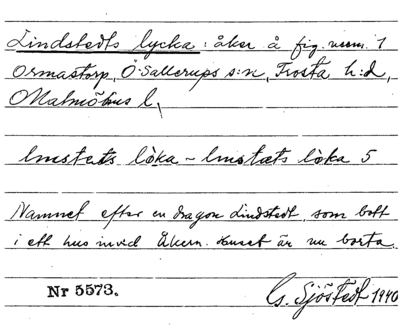 Lindstedts lycka: åker å fig. num. 1
Ormastorp, Ö. Sallerups s:n, Frosta h:d,
Malmöhus l.
linstets löka ~ linstæts löka 5
Namnet efter en dragon Lindstedt, som bott
i ett hus invid åkern. Huset är nu borta.
Nr 5573.
G. Sjöstedt 1940